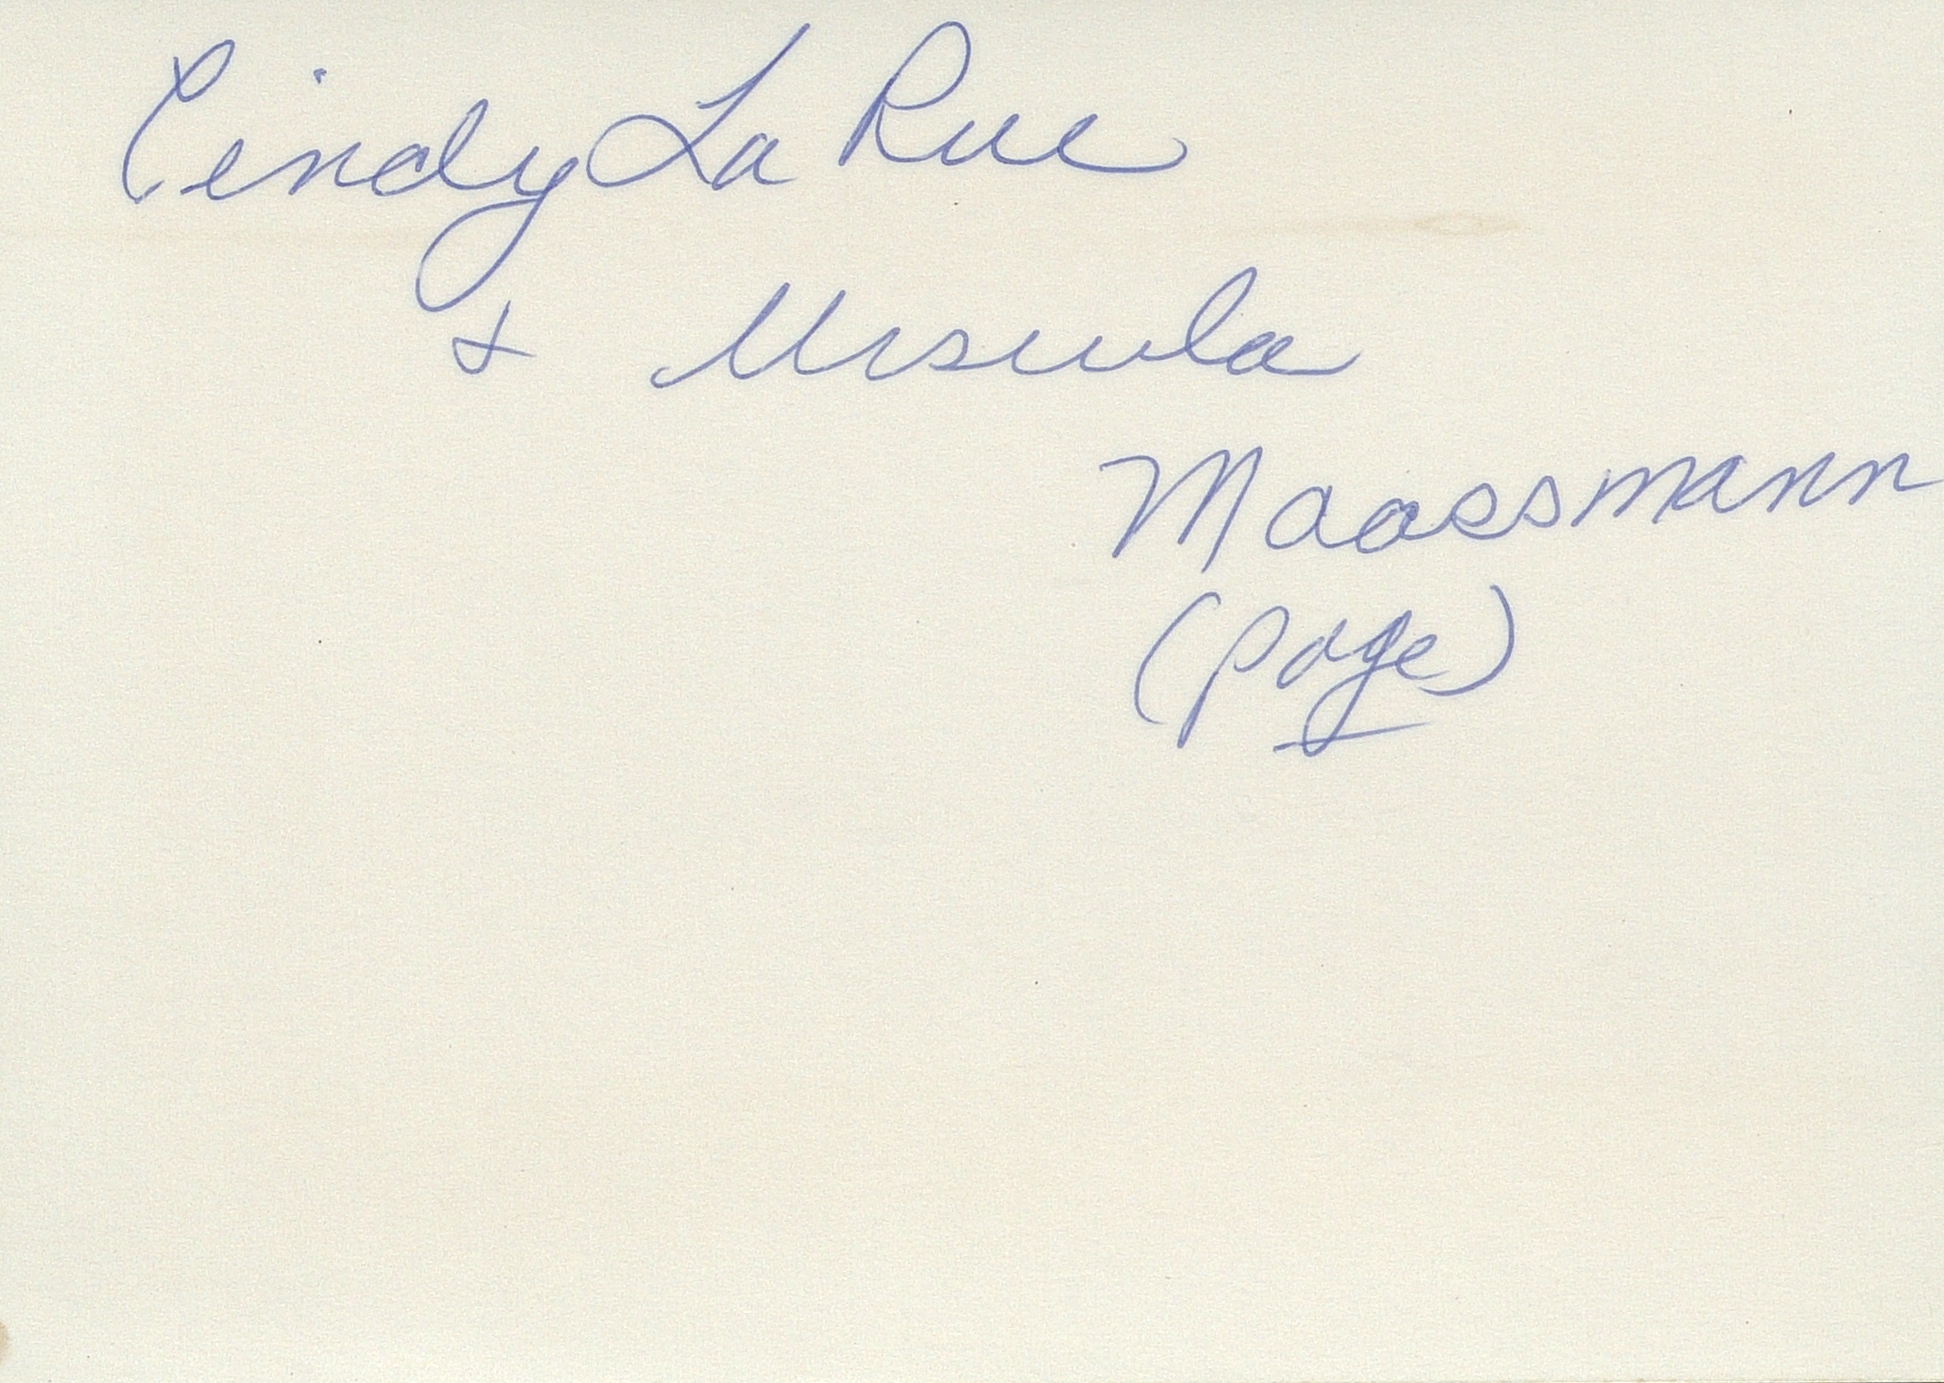 Cindy La Rue
& Ursula
Maassmann
(page)